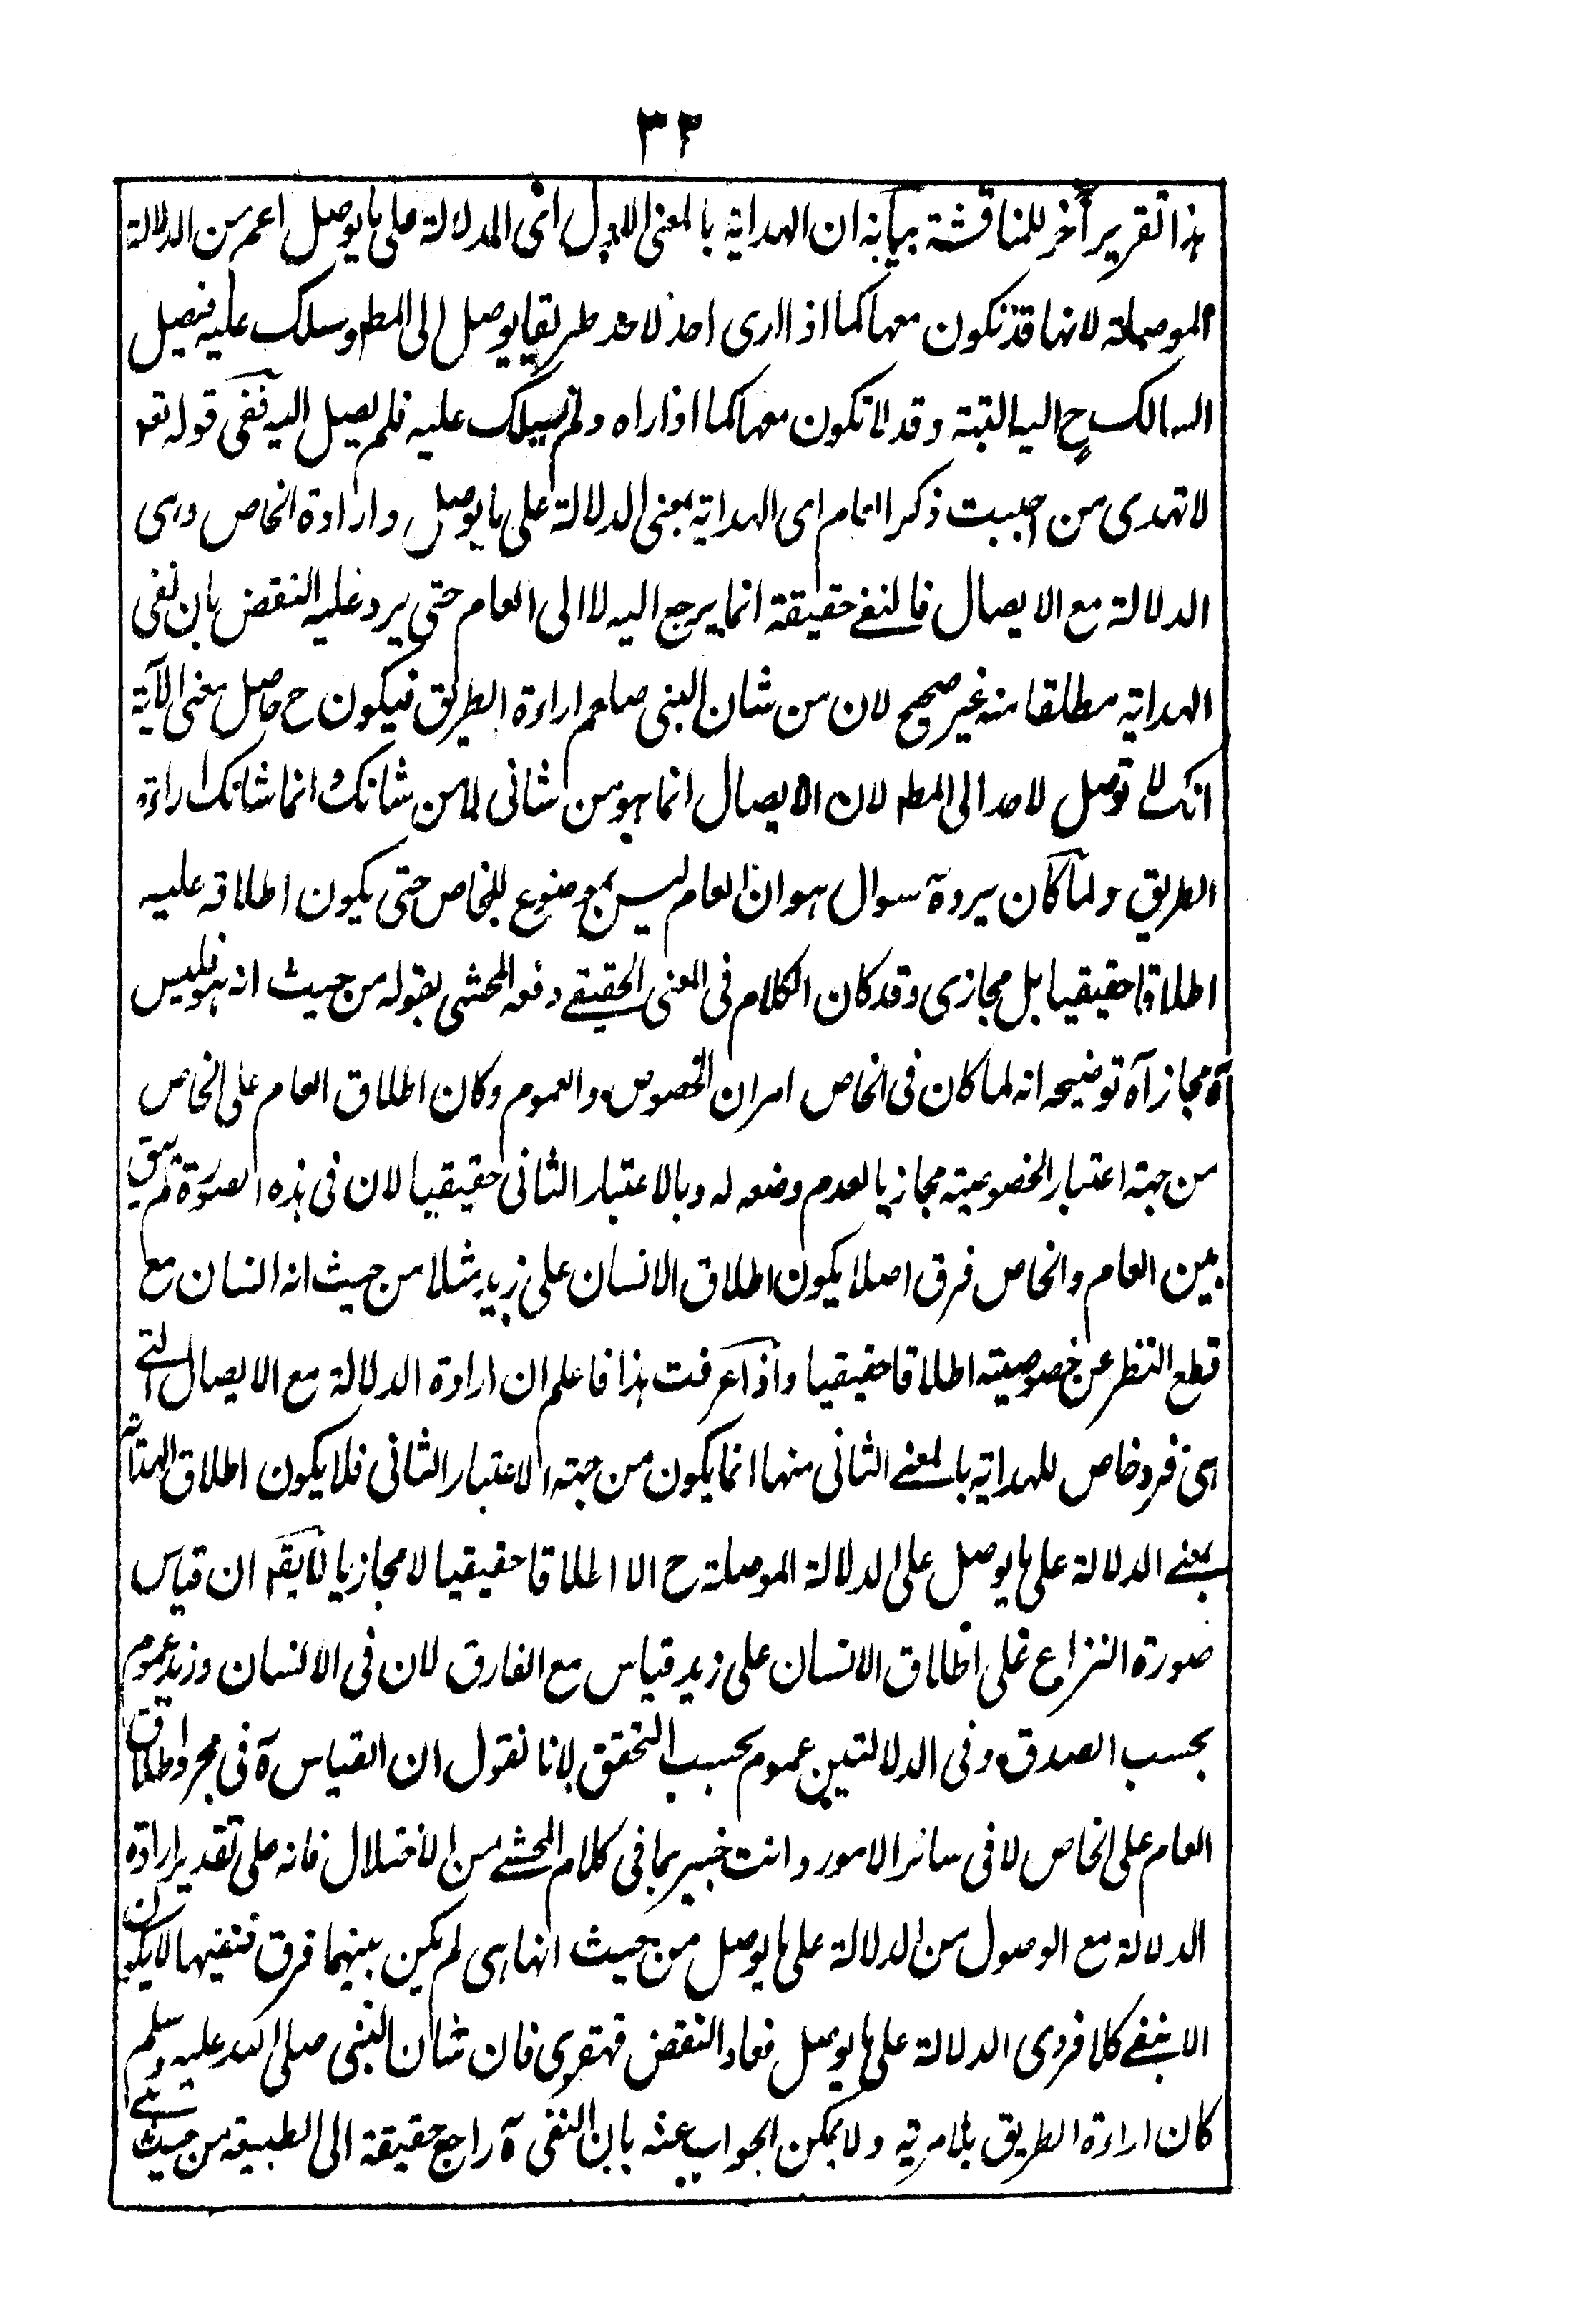 ٣٢
هذا تقرير آخر للمناقشة بيانه ان الهداية بالمعنى الاول اى الدلالة على ما يوصل اعم من الدلالة
الموصلة لانها قد تكون معها كما اذا ارى احد لاحد طريقا يوصل الى المط وسلك عليه فيصل
السالك ح اليه البتة وقد لا تكون معها كما اذا اراه ولم يسلك عليه فلم يصل اليه ففى قوله تعم
لا تهدى من احببت ذكر العام اى الهداية بمعنى الدلالة على ما يوصل وارادة الخاص وهى
الدلالة مع الايصال فالنفى حقيقة انما يرجع اليه لا الى العام حتى يرد عليه النقض بان نفى
الهداية مطلقا منه غير صحيح لان من شان النبى صلعم اراءة الطريق فيكون ح حاصل معنى الآية
انك لا توصل لاحد الى المط لان الايصال انما هو من شانى لا من شانك انما شانك اراءة
الطريق ولما كان يرد ة سوال هو ان العام ليس بموضوع للخاص حتى يكون اطلاقه عليه
اطلاقا حقيقيا بل مجازى وقد كان الكلام فى المعنى الحقيقى دفعه المحشى بقوله من حيث انه هو فليس
ة مجاز آه توضيحه انه لما كان فى الخاص امران الخصوص والعموم وكان اطلاق العام على الخاص
من جهة اعتبار الخصوصية مجازيا لعدم وضعه له وبالاعتبار الثانى حقيقيا لان فى هذه الصورة لم يبق
بين العام والخاص فرق اصلا يكون اطلاق الانسان على زيد مثلا من حيث انه انسان مع
قطع النظر عن خصوصيته اطلاقا حقيقيا واذا عرفت هذا فاعلم ان ارادة الدلالة مع الايصال التى
هى فرد خاص للهداية بالمعنى الثانى منها انما يكون من جهة الاعتبار الثانى فلا يكون اطلاق الهداية
بمعنى الدلالة على ما يوصل على الدلالة الموصلة ح الا اطلاقا حقيقيا لا مجازيا لا يقه ان قياس
صورة النزاع على اطلاق الانسان على زيد قياس مع الفارق لان فى الانسان وزيد عموم
بحسب الصدق وفى الدلالتين عموم بحسب التحقق لانا نقول ان القياس ة فى مجرد اطلاق
العام على الخاص لا فى سائر الامور وانت خبير بما فى كلام المحشى من الاختلال فانه على تقدير ارادة
الدلالة مع الوصول من الدلالة على ما يوصل من حيث انها هى لم يكن بينهما فرق فنفيها لا يكون
الا بنفى كلا فردى الدلالة على ما يوصل فعاد النقض قهقرى فان شان النبى صلى الله عليه وسلم
كان اراءة الطريق بلا مرية ولا يمكن الجواب عنه بان النفى ة راجع حقيقة الى الطبيعة من حيث